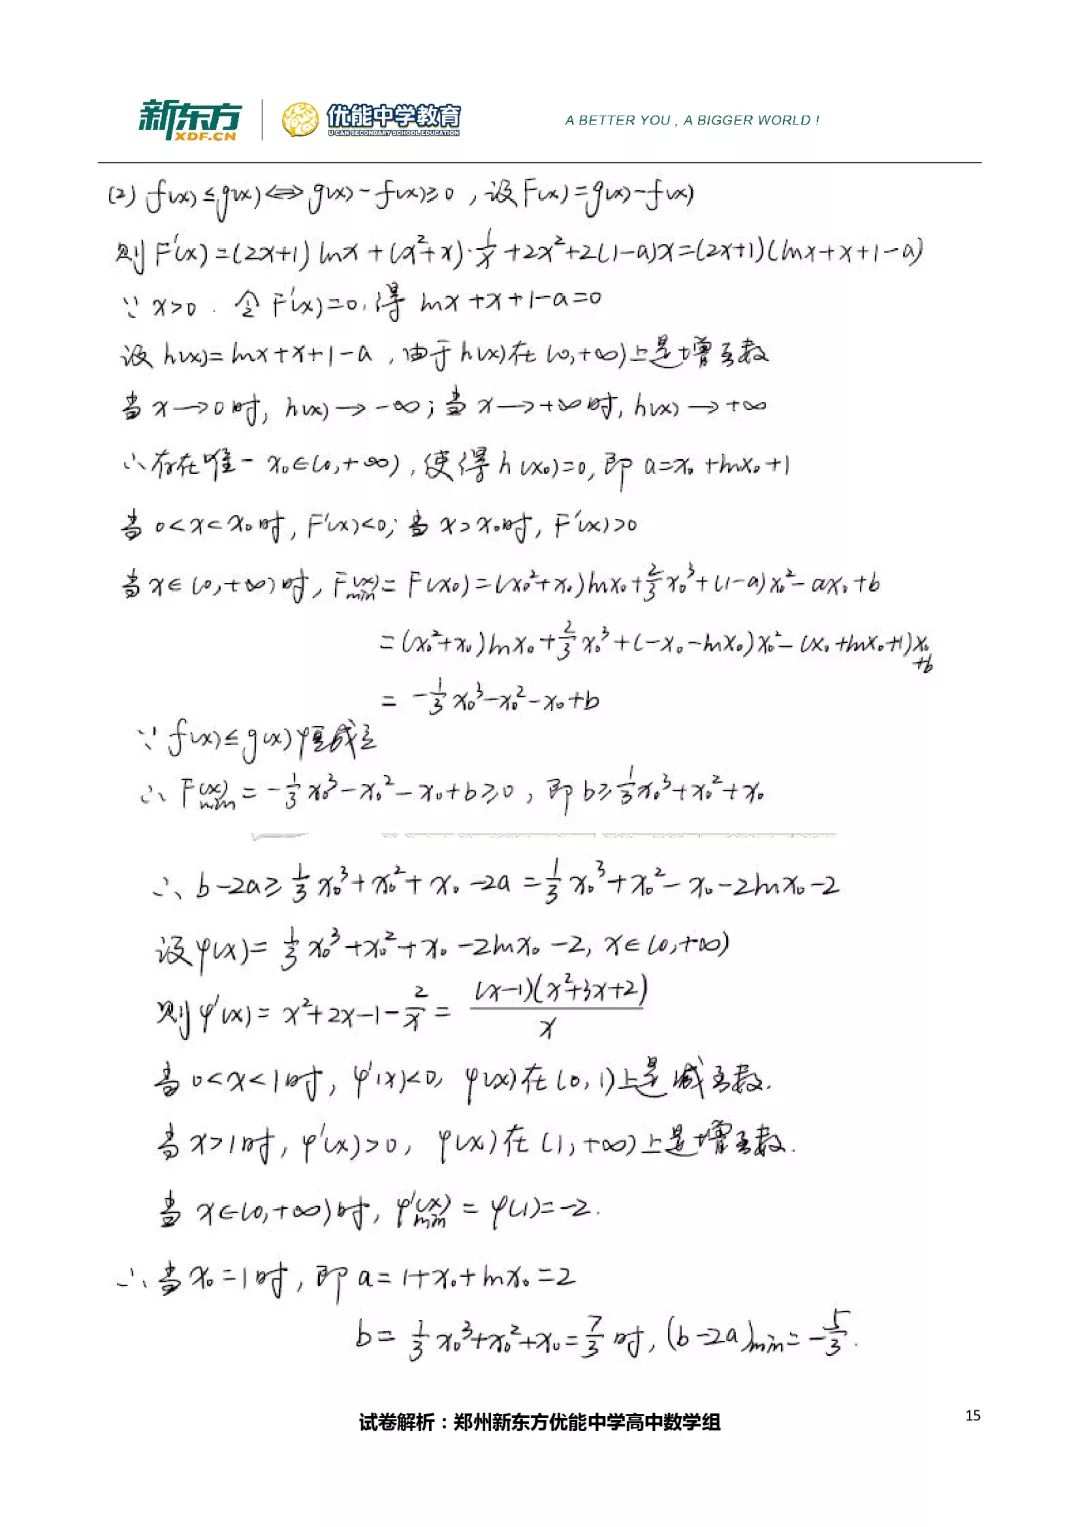 新东方 XDF.CN 优能中学教育 U-CAN SECONDARY SCHOOL EDUCATION A BETTER YOU , A BIGGER WORLD !
(2) f(x)≤g(x)⟺g(x)-f(x)≥0，设F(x)=g(x)-f(x)
则F'(x)=(2x+1)lnx+(x²+x)·1/x+2x²+2(1-a)x=(2x+1)(lnx+x+1-a)
∵x>0．令F'(x)=0，得 lnx+x+1-a=0
设h(x)=lnx+x+1-a，由于h(x)在(0,+∞)上是增函数
当x→0时，h(x)→-∞；当x→+∞时，h(x)→+∞
∴存在唯一x₀∈(0,+∞)，使得h(x₀)=0，即a=x₀+lnx₀+1
当0<x<x₀时，F'(x)<0；当x>x₀时，F'(x)>0
当x∈(0,+∞)时，F(x)min=F(x₀)=(x₀²+x₀)lnx₀+2/3x₀³+(1-a)x₀²-ax₀+b
=(x₀²+x₀)lnx₀+2/3x₀³+(-x₀-lnx₀)x₀²-(x₀+lnx₀+1)x₀+b
=-1/3x₀³-x₀²-x₀+b
∵f(x)≤g(x)恒成立
∴F(x)min=-1/3x₀³-x₀²-x₀+b≥0，即b≥1/3x₀³+x₀²+x₀
∴b-2a≥1/3x₀³+x₀²+x₀-2a=1/3x₀³+x₀²-x₀-2lnx₀-2
设φ(x)=1/3x₀³+x₀²+x₀-2lnx₀-2，x∈(0,+∞)
则φ'(x)=x²+2x-1-2/x=(x-1)(x²+3x+2)/x
当0<x<1时，φ'(x)<0，φ(x)在(0,1)上是减函数．
当x>1时，φ'(x)>0，φ(x)在(1,+∞)上是增函数．
当x∈(0,+∞)时，φ'(x)min=φ(1)=-2．
∴当x₀=1时，即a=1+x₀+lnx₀=2
b=1/3x₀³+x₀²+x₀=7/3时，(b-2a)min=-5/3．
试卷解析：郑州新东方优能中学高中数学组
15